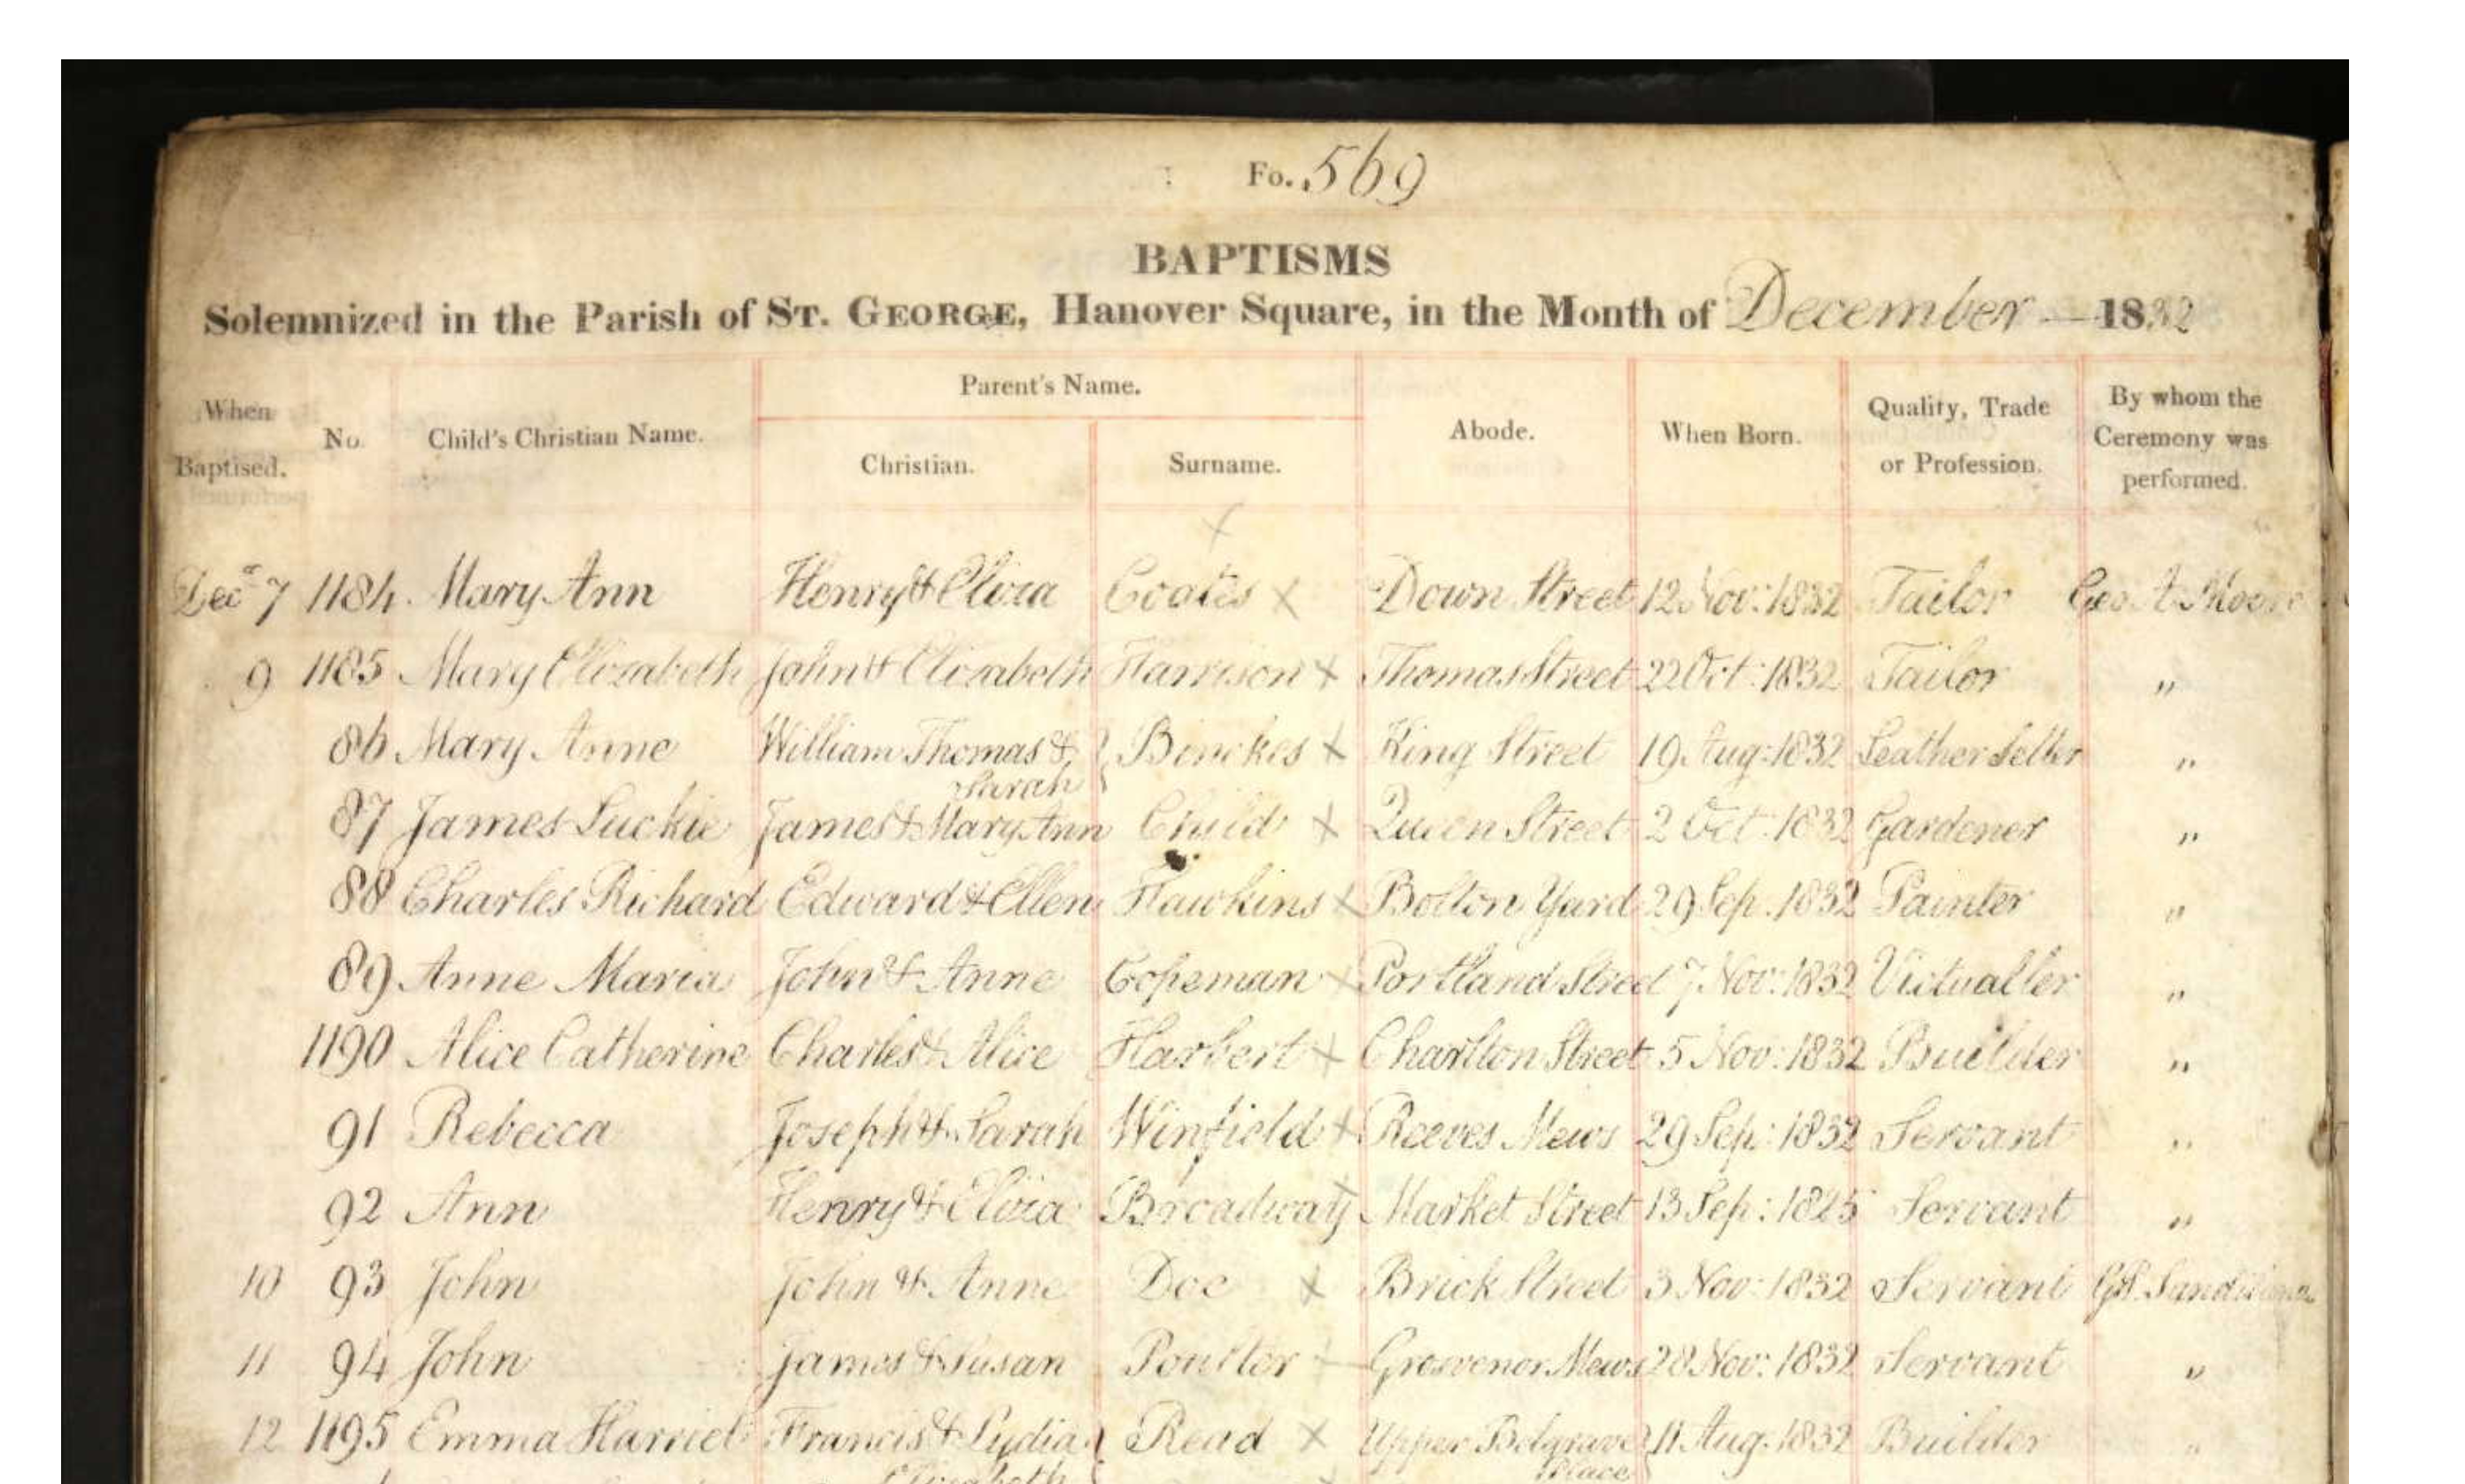 Fo. 569
BAPTISMS
Solemnized in the Parish of ST. GEORGE, Hanover Square, in the Month of December — 1832
When Baptised. No. Child's Christian Name. Parent's Name. Christian. Surname. Abode. When Born. Quality, Trade or Profession. By whom the Ceremony was performed.
Decr 7 1184. Mary Ann Henry & Eliza Coates × Down Street 12 Nov: 1832 Tailor Geo A Moore
9 1185 Mary Elizabeth John & Elizabeth Harrison × Thomas Street 22 Oct: 1832 Tailor "
86 Mary Anne William Thomas & Sarah } Binckes × King Street 19 Aug: 1832 Leather Seller "
87 James Luckie James & Mary Ann Child × Queen Street 2 Oct: 1832 Gardener "
88 Charles Richard Edward & Ellen Hawkins × Bolton Yard 29 Sep: 1832 Painter "
89 Anne Maria John & Anne Copeman × Portland Street 7 Nov: 1832 Victualler "
1190 Alice Catherine Charles & Alice Harbert × Charlton Street 5 Nov: 1832 Builder "
91 Rebecca Joseph & Sarah Winfield × Reeves Mews 29 Sep: 1832 Servant "
92 Ann Henry & Eliza Broadway Market Street 13 Sep: 1825 Servant "
10 93 John John & Anne Doe × Brick Street 3 Nov: 1832 Servant
11 94 John James & Susan Poulter × Grosvenor Mews 28 Nov: 1832 Servant "
12 1195 Emma Harriet Francis & Lydia Elizabeth } Read × Upper Belgrave Place } 11 Aug: 1832 Builder "